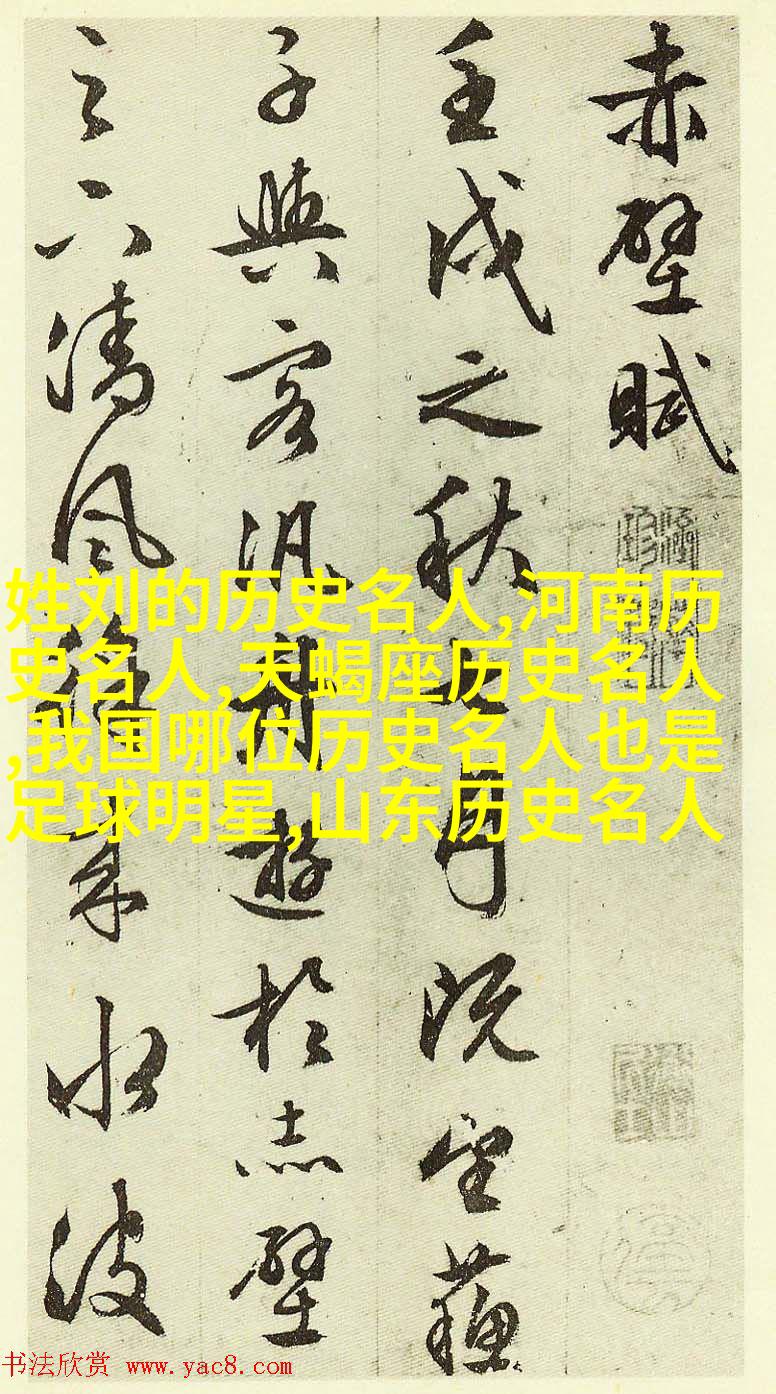 赤壁賦
壬戌之秋七月既望蘓
子與客汎舟遊於赤壁
之下清風徐來水波
姓刘的历史名人,河南历
史名人,天蝎座历史名人
,我国哪位历史名人也是
足球明星,山东历史名人
书法欣赏 www.yac8.com